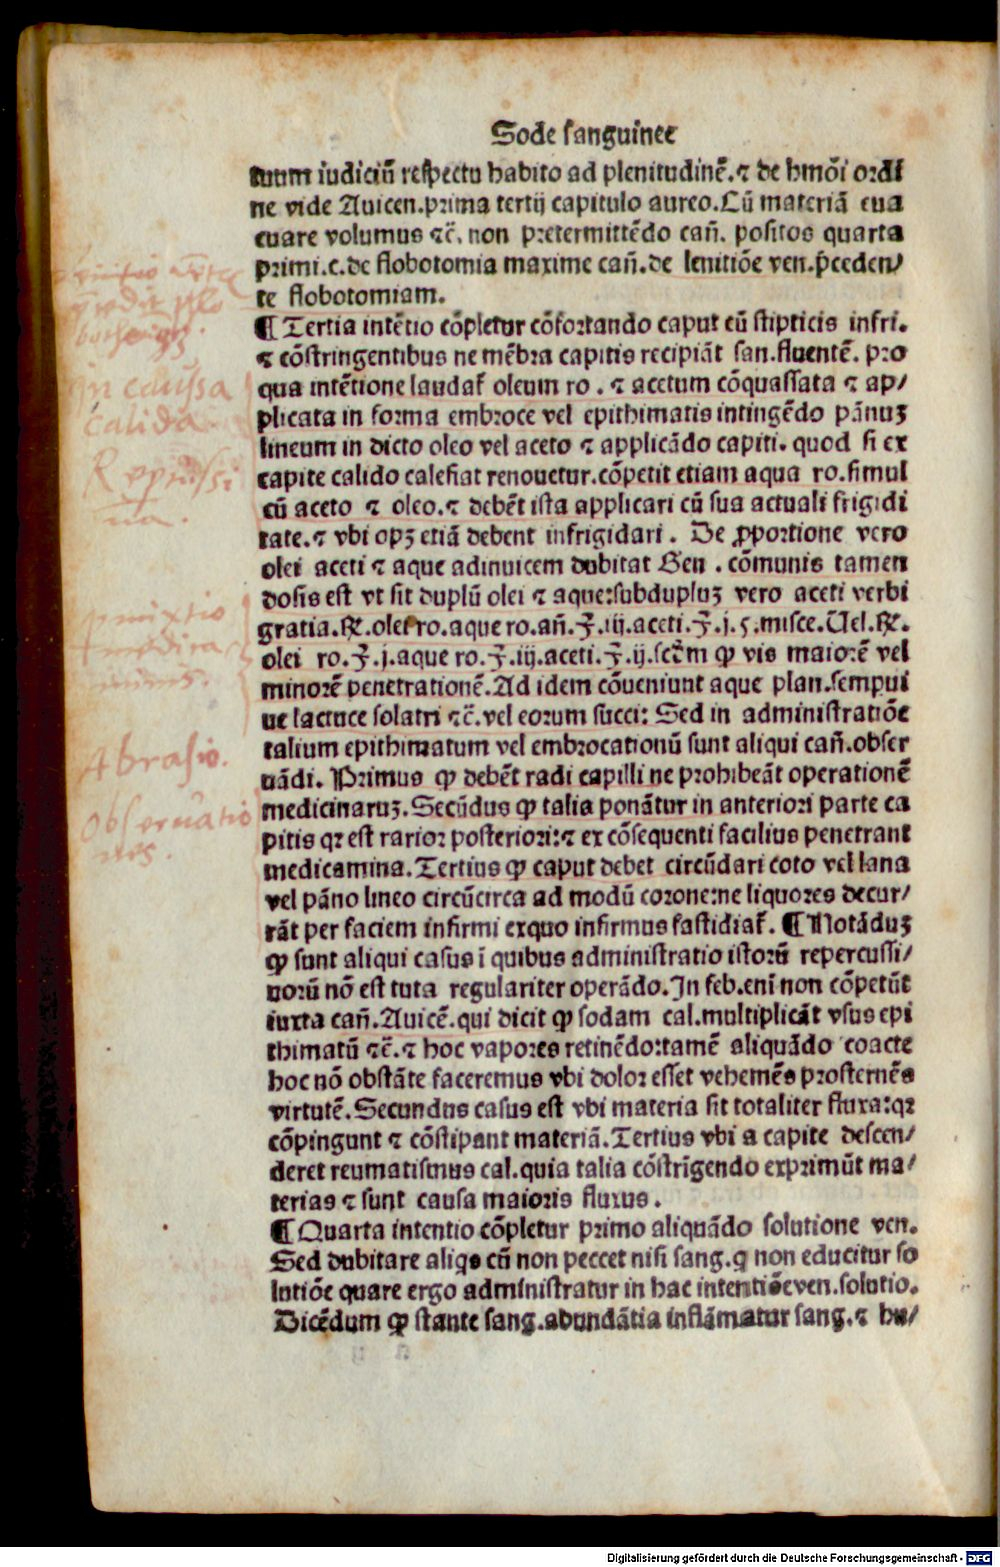 Sode sanguinee
tuum iudiciũ respectu habito ad plenitudinẽ.⁊ de hmõi ordi
ne vide Auicen.prima tertij capitulo aureo.Cũ materiã eua
cuare volumus ⁊c̃. non pretermittẽdo cañ. positos quarta
primi.c.de flobotomia maxime cañ.de lenitiõe ven.p̃ceden/
te flobotomiam.
¶ Tertia intẽtio cõpletur cõfortando caput cũ stipticis infri.
⁊ cõstringentibus ne mẽbra capitis recipiãt san.fluentẽ. pro
qua intẽtione laudat᷑ oleum ro . ⁊ acetum cõquassata ⁊ ap/
plicata in forma embroce vel epithimatis intingẽdo pãnuꝫ
lineum in dicto oleo vel aceto ⁊ applicãdo capiti. quod si ex
capite calido calefiat renouetur.cõpetit etiam aqua ro.simul
cũ aceto ⁊ oleo.⁊ debẽt ista applicari cũ sua actuali frigidi
tate.⁊ vbi opꝫ etiã debent infrigidari . De ꝓportione vero
olei aceti ⁊ aque adinuicem dubitat Gen . cõmunis tamen
dosis est vt sit duplũ olei ⁊ aque:subdupluꝫ vero aceti verbi
gratia.℞.olei ro.aque ro.añ.℥.iij.aceti.℥.j.ꝭ.misce.Uel.℞.
olei ro.℥.j.aque ro.℥.iij.aceti.℥.ij.scd̃m ꝙ vis maiorẽ vel
minorẽ penetrationẽ.Ad idem cõueniunt aque plan.semperui
ue lactuce solatri ⁊c̃.vel eorum succi: Sed in administratiõe
talium epithimatum vel embrocationũ sunt aliqui cañ.obser
uãdi. Primus ꝙ debẽt radi capilli ne prohibeãt operationẽ
medicinaruꝫ.Secũdus ꝙ talia ponãtur in anteriori parte ca
pitis qꝛ est rarior posteriori:⁊ ex cõsequenti facilius penetrant
medicamina.Tertius ꝙ caput debet circũdari coto vel lana
vel pãno lineo circũcirca ad modũ corone:ne liquores decur/
rãt per faciem infirmi exquo infirmus fastidiat᷑. ¶ Notãduꝫ
ꝙ sunt aliqui casus ĩ quibus administratio istorũ repercussi/
uorũ nõ est tuta regulariter operãdo.In feb.enĩ non cõpetũt
iuxta cañ.Auicẽ.qui dicit ꝙ sodam cal.multiplicãt vsus epi
thimatũ ⁊c̃.⁊ hoc vapores retinẽdo:tamẽ aliquãdo coacte
hoc nõ obstãte faceremus vbi dolor esset vehemẽs prosternẽs
virtutẽ.Secundus casus est vbi materia sit totaliter fluxa:qꝛ
cõpingunt ⁊ cõstipant materiã.Tertius vbi a capite descen/
deret reumatismus cal.quia talia cõstrĩgendo exprimũt ma/
terias ⁊ sunt causa maioris fluxus .
¶ Quarta intentio cõpletur primo aliquãdo solutione ven.
Sed dubitare aliqs cũ non peccet nisi sang.q non educitur so
lutiõe quare ergo administratur in hac intentiõe ven.solutio.
Dicẽdum ꝙ stante sang.abundãtia inflãmatur sang.⁊ hu/
In caussa
calida.
Repercussi
ua.
Abrasio.
Obseruatio
nes.
Digitalisierung gefördert durch die Deutsche Forschungsgemeinschaft - DFG